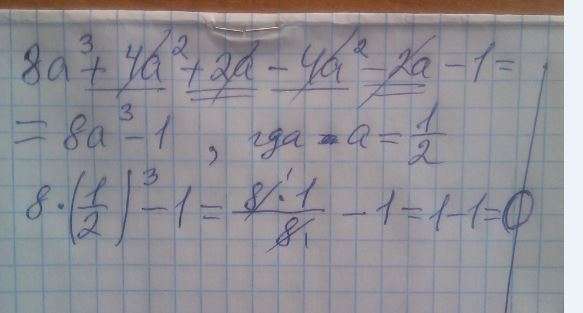 8a³ + 4a² + 2a - 4a² - 2a - 1 =
= 8a³ - 1, где a = 1/2
8 · (1/2)³ - 1 = 8 · 1/8 - 1 = 1 - 1 = 0